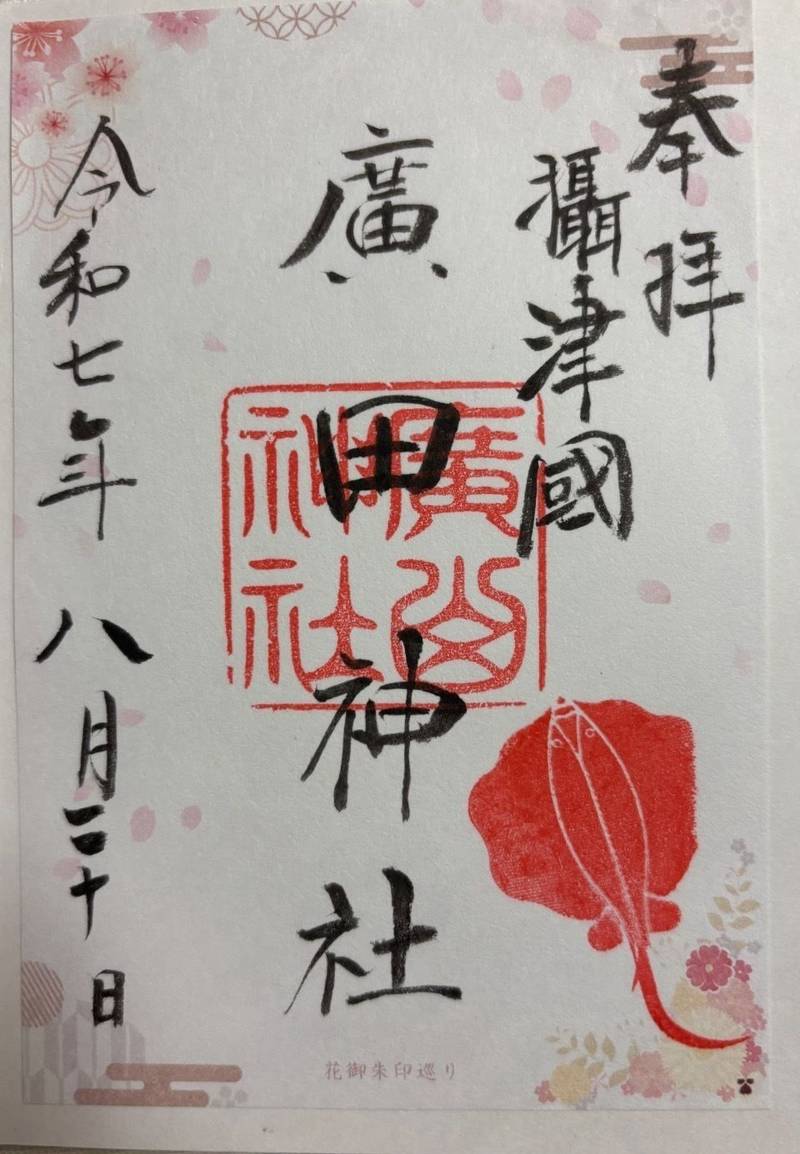 奉拝
攝津國
廣田神社
廣田神社
令和七年 八月二十日
花御朱印巡り